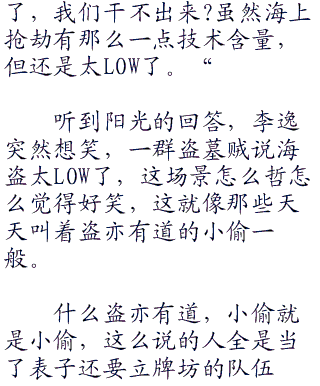 了，我们干不出来?虽然海上
抢劫有那么一点技术含量，
但还是太LOW了。“
听到阳光的回答，李逸
突然想笑，一群盗墓贼说海
盗太LOW了，这场景怎么哲怎
么觉得好笑，这就像那些天
天叫着盗亦有道的小偷一
般。
什么盗亦有道，小偷就
是小偷，这么说的人全是当
了表子还要立牌坊的队伍